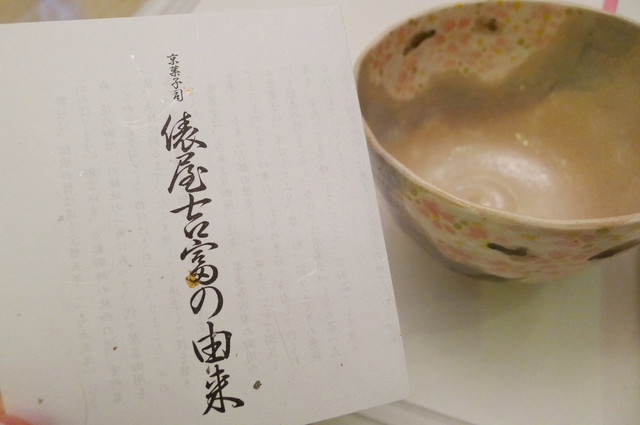 京菓子司
俵屋吉富の由来